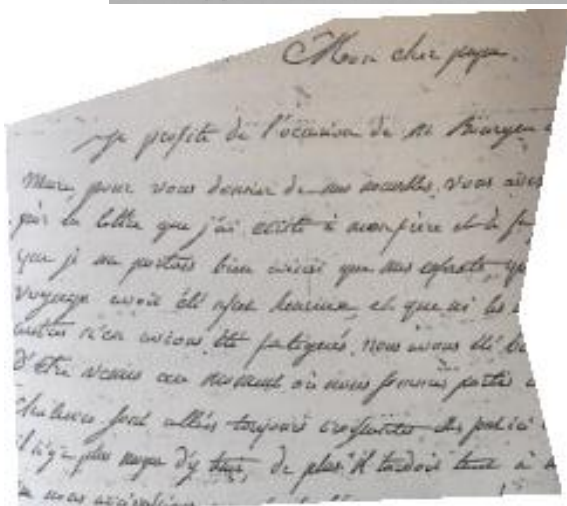 Mon cher papa.
Je profite de l'occasion de M. Bourgeu
Mure, pour vous donner de nos nouvelles. vous avez
par la lettre que j'ai écrite à mon frère et à
que je me portais bien ainsi que mes enfants, que
voyage avoit été assez heureux, et que ni les
autres n'en avions été fatigués. nous avons été
d'être venus au moment où nous sommes partis
chaleurs sont allées toujours croissantes
il n'y a plus moyen d'y tenir, de plus il tardoit tant à
nous